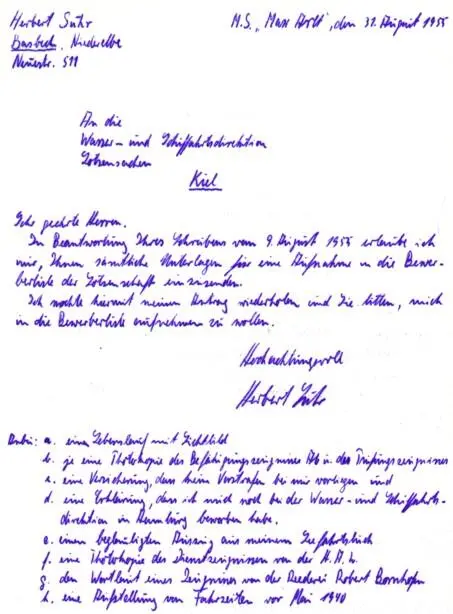 Herbert Suhr
M.S. „Max Bolt“, den 31. August 1955
Basbeck, Niederelbe
Neuestr. 511
An die
Wasser- und Schiffahrtsdirektion
Lotsensachen
Kiel
Sehr geehrte Herren.
In Beantwortung Ihres Schreibens vom 9. August 1955 erlaube ich
mir, Ihnen sämtliche Unterlagen für eine Aufnahme in die Bewer-
berliste der Lotsenschaft einzusenden.
Ich möchte hiermit meinen Antrag wiederholen und Sie bitten, mich
in die Bewerberliste aufnehmen zu wollen.
Hochachtungsvoll
Herbert Suhr
Anbei: a. einen Lebenslauf mit Lichtbild
b. je eine Photokopie des Befähigungszeugnisses A6 in des Prüfungszeugnisses
c. eine Versicherung, dass kein Vorstrafen bei mir vorliegen und
d. eine Erklärung, dass ich mich noch bei der Wasser- und Schiffahrts-
direktion in Hamburg beworben habe.
e. einen beglaubigten Auszug aus meinem Seefahrtsbuch
f. eine Photokopie des Dienstzeugnisses von der H.A.L.
g. den Wortlaut eines Zeugnisses von der Reederei Robert Bornhofen
h. eine Aufstellung von Fahrzeiten vor Mai 1940